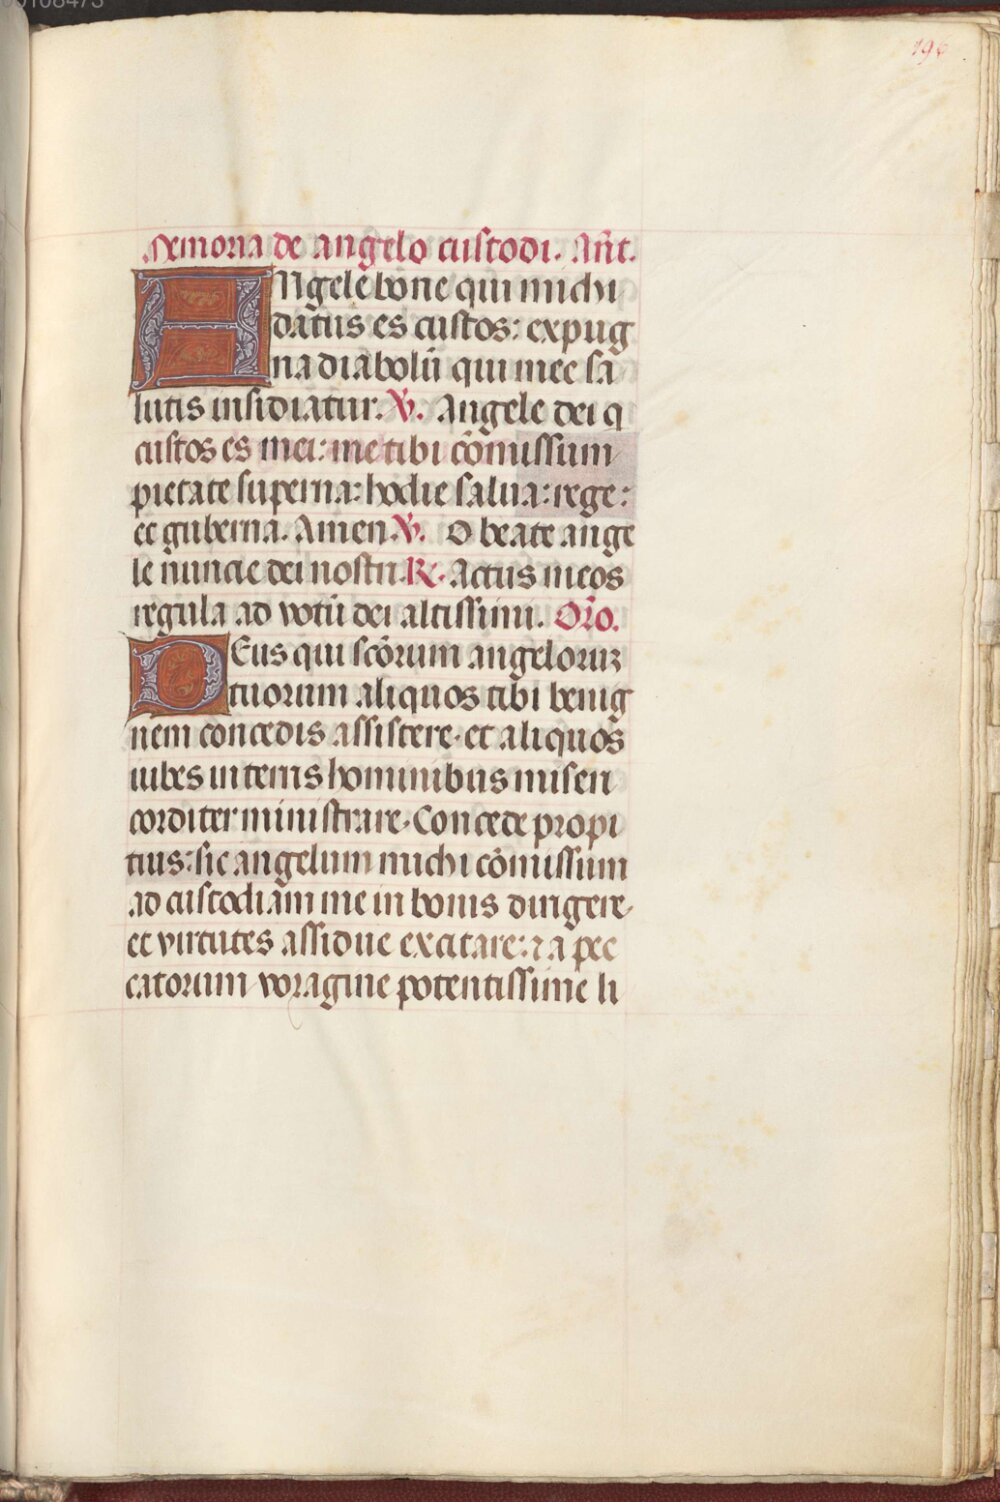 00108473
196
Memoria de angelo custodi. Ant̄.
ANgele bone qui michi
datus es custos: expug
na diabolū qui mee sa
lutis insidiatur. ℣. Angele dei q
custos es mei: me tibi cōmissum
pietate superna: hodie salua: rege:
et guberna. Amen. ℣. O beate ange
le nuncie dei nostri. ℟. Actus meos
regula ad votū dei altissimi. Or̄o.
DEus qui scōrum angelorum
tuorum aliquos tibi benig
nem concedis assistere. et aliquos
iubes in terris hominibus miseri
corditer ministrare. Concede propi
tius: sic angelum michi cōmissum
ad custodiam me in bonis dirigere.
et virtutes assidue excitare: ⁊ a pec
catorum voragine potentissime li